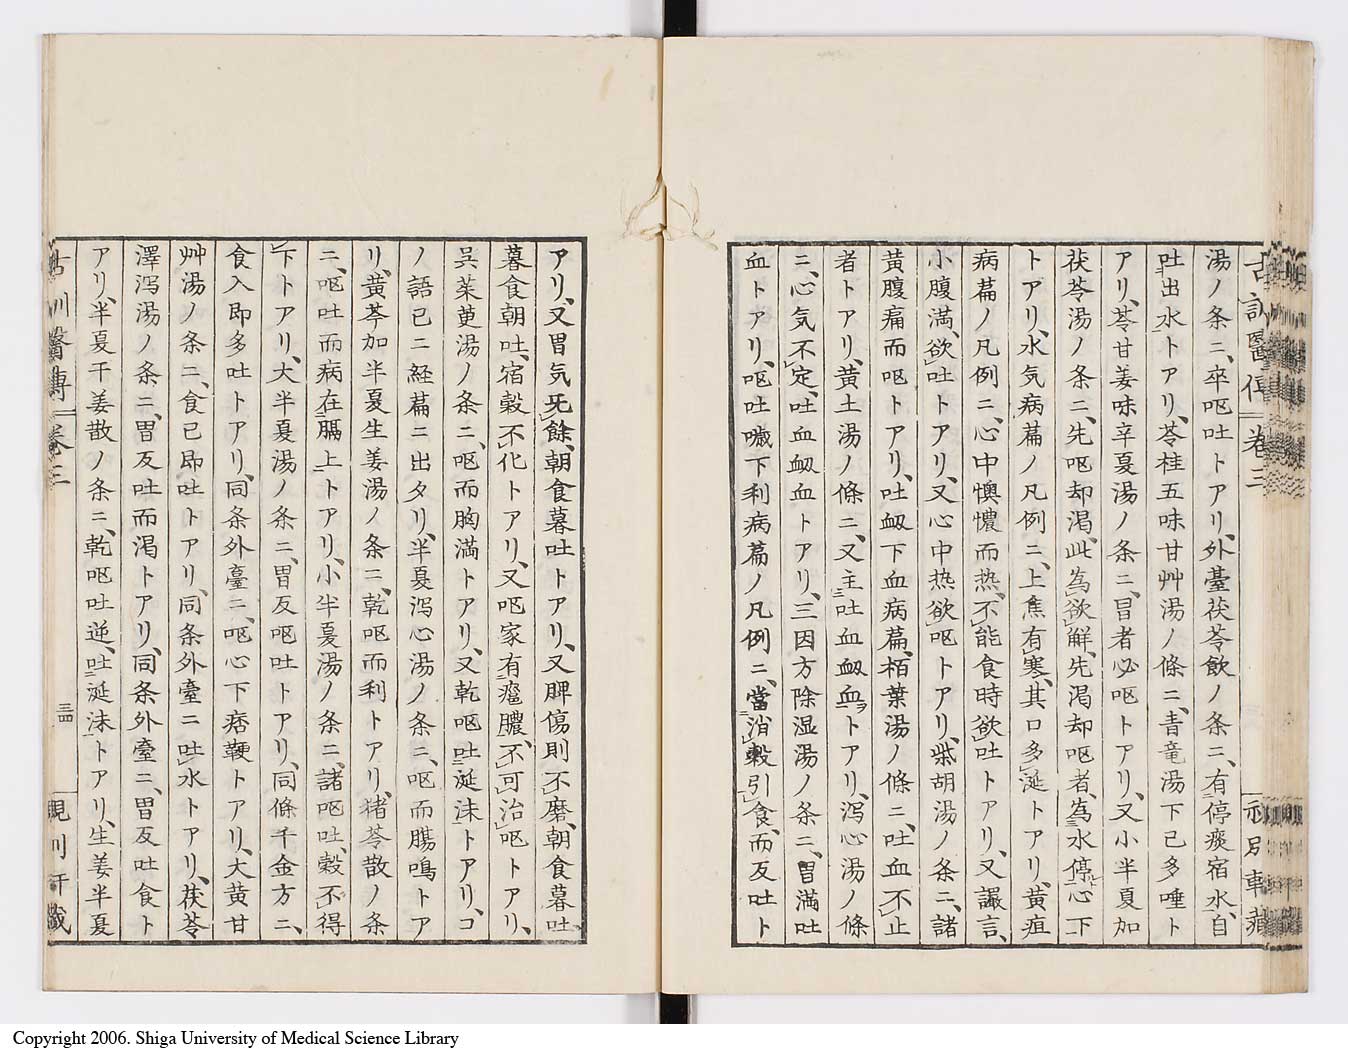 湯ノ条ニ、卒呕吐トアリ、外臺茯苓飲ノ条ニ、有停痰宿水、自
吐出水トアリ、苓桂五味甘艸湯ノ條ニ、青竜湯下已多唾ト
アリ、苓甘姜味辛夏湯ノ条ニ、冒者必呕トアリ、又小半夏加
茯苓湯ノ条ニ、先呕却渇、此為欲解、先渇却呕者、為水停心下
トアリ、水気病萹ノ凡例ニ、上焦有寒、其口多涎トアリ、黄疸
病萹ノ凡例ニ、心中懊憹而热、不能食時欲吐トアリ、又讝言、
小腹満、欲吐トアリ、又心中热欲呕トアリ、柴胡湯ノ条ニ、諸
黄腹痛而呕トアリ、吐衄下血病萹、栢葉湯ノ條ニ、吐血不止
者トアリ、黄土湯ノ條ニ、又主吐血衂血トアリ、瀉心湯ノ條
ニ、心気不定、吐血衂血トアリ、三因方除湿湯ノ条ニ、胃満吐
血トアリ、呕吐噦下利病萹ノ凡例ニ、當消穀引食、而反吐ト
アリ、又胃気旡餘、朝食暮吐トアリ、又脾傷則不磨、朝食暮吐、
暮食朝吐、宿穀不化トアリ、又呕家有癰膿、不可治呕トアリ、
呉茱萸湯ノ条ニ、呕而胸満トアリ、又乾呕吐涎沫トアリ、コ
ノ語已ニ経萹ニ出タリ、半夏瀉心湯ノ条ニ、呕而腸鳴トア
リ、黄芩加半夏生姜湯ノ条ニ、乾呕而利トアリ、猪苓散ノ条
ニ、呕吐而病在膈上トアリ、小半夏湯ノ条ニ、諸呕吐、穀不得
下トアリ、大半夏湯ノ条ニ、胃反呕吐トアリ、同條千金方ニ、
食入即多吐トアリ、同条外臺ニ、呕心下痞鞕トアリ、大黄甘
艸湯ノ条ニ、食已即吐トアリ、同条外臺ニ吐水トアリ、茯苓
澤瀉湯ノ条ニ、胃反吐而渇トアリ、同条外臺ニ、胃反吐食ト
アリ、半夏干姜散ノ条ニ、乾呕吐逆、吐涎沫トアリ、生姜半夏
古訓醫傳 卷三 三四
Copyright 2006. Shiga University of Medical Science Library